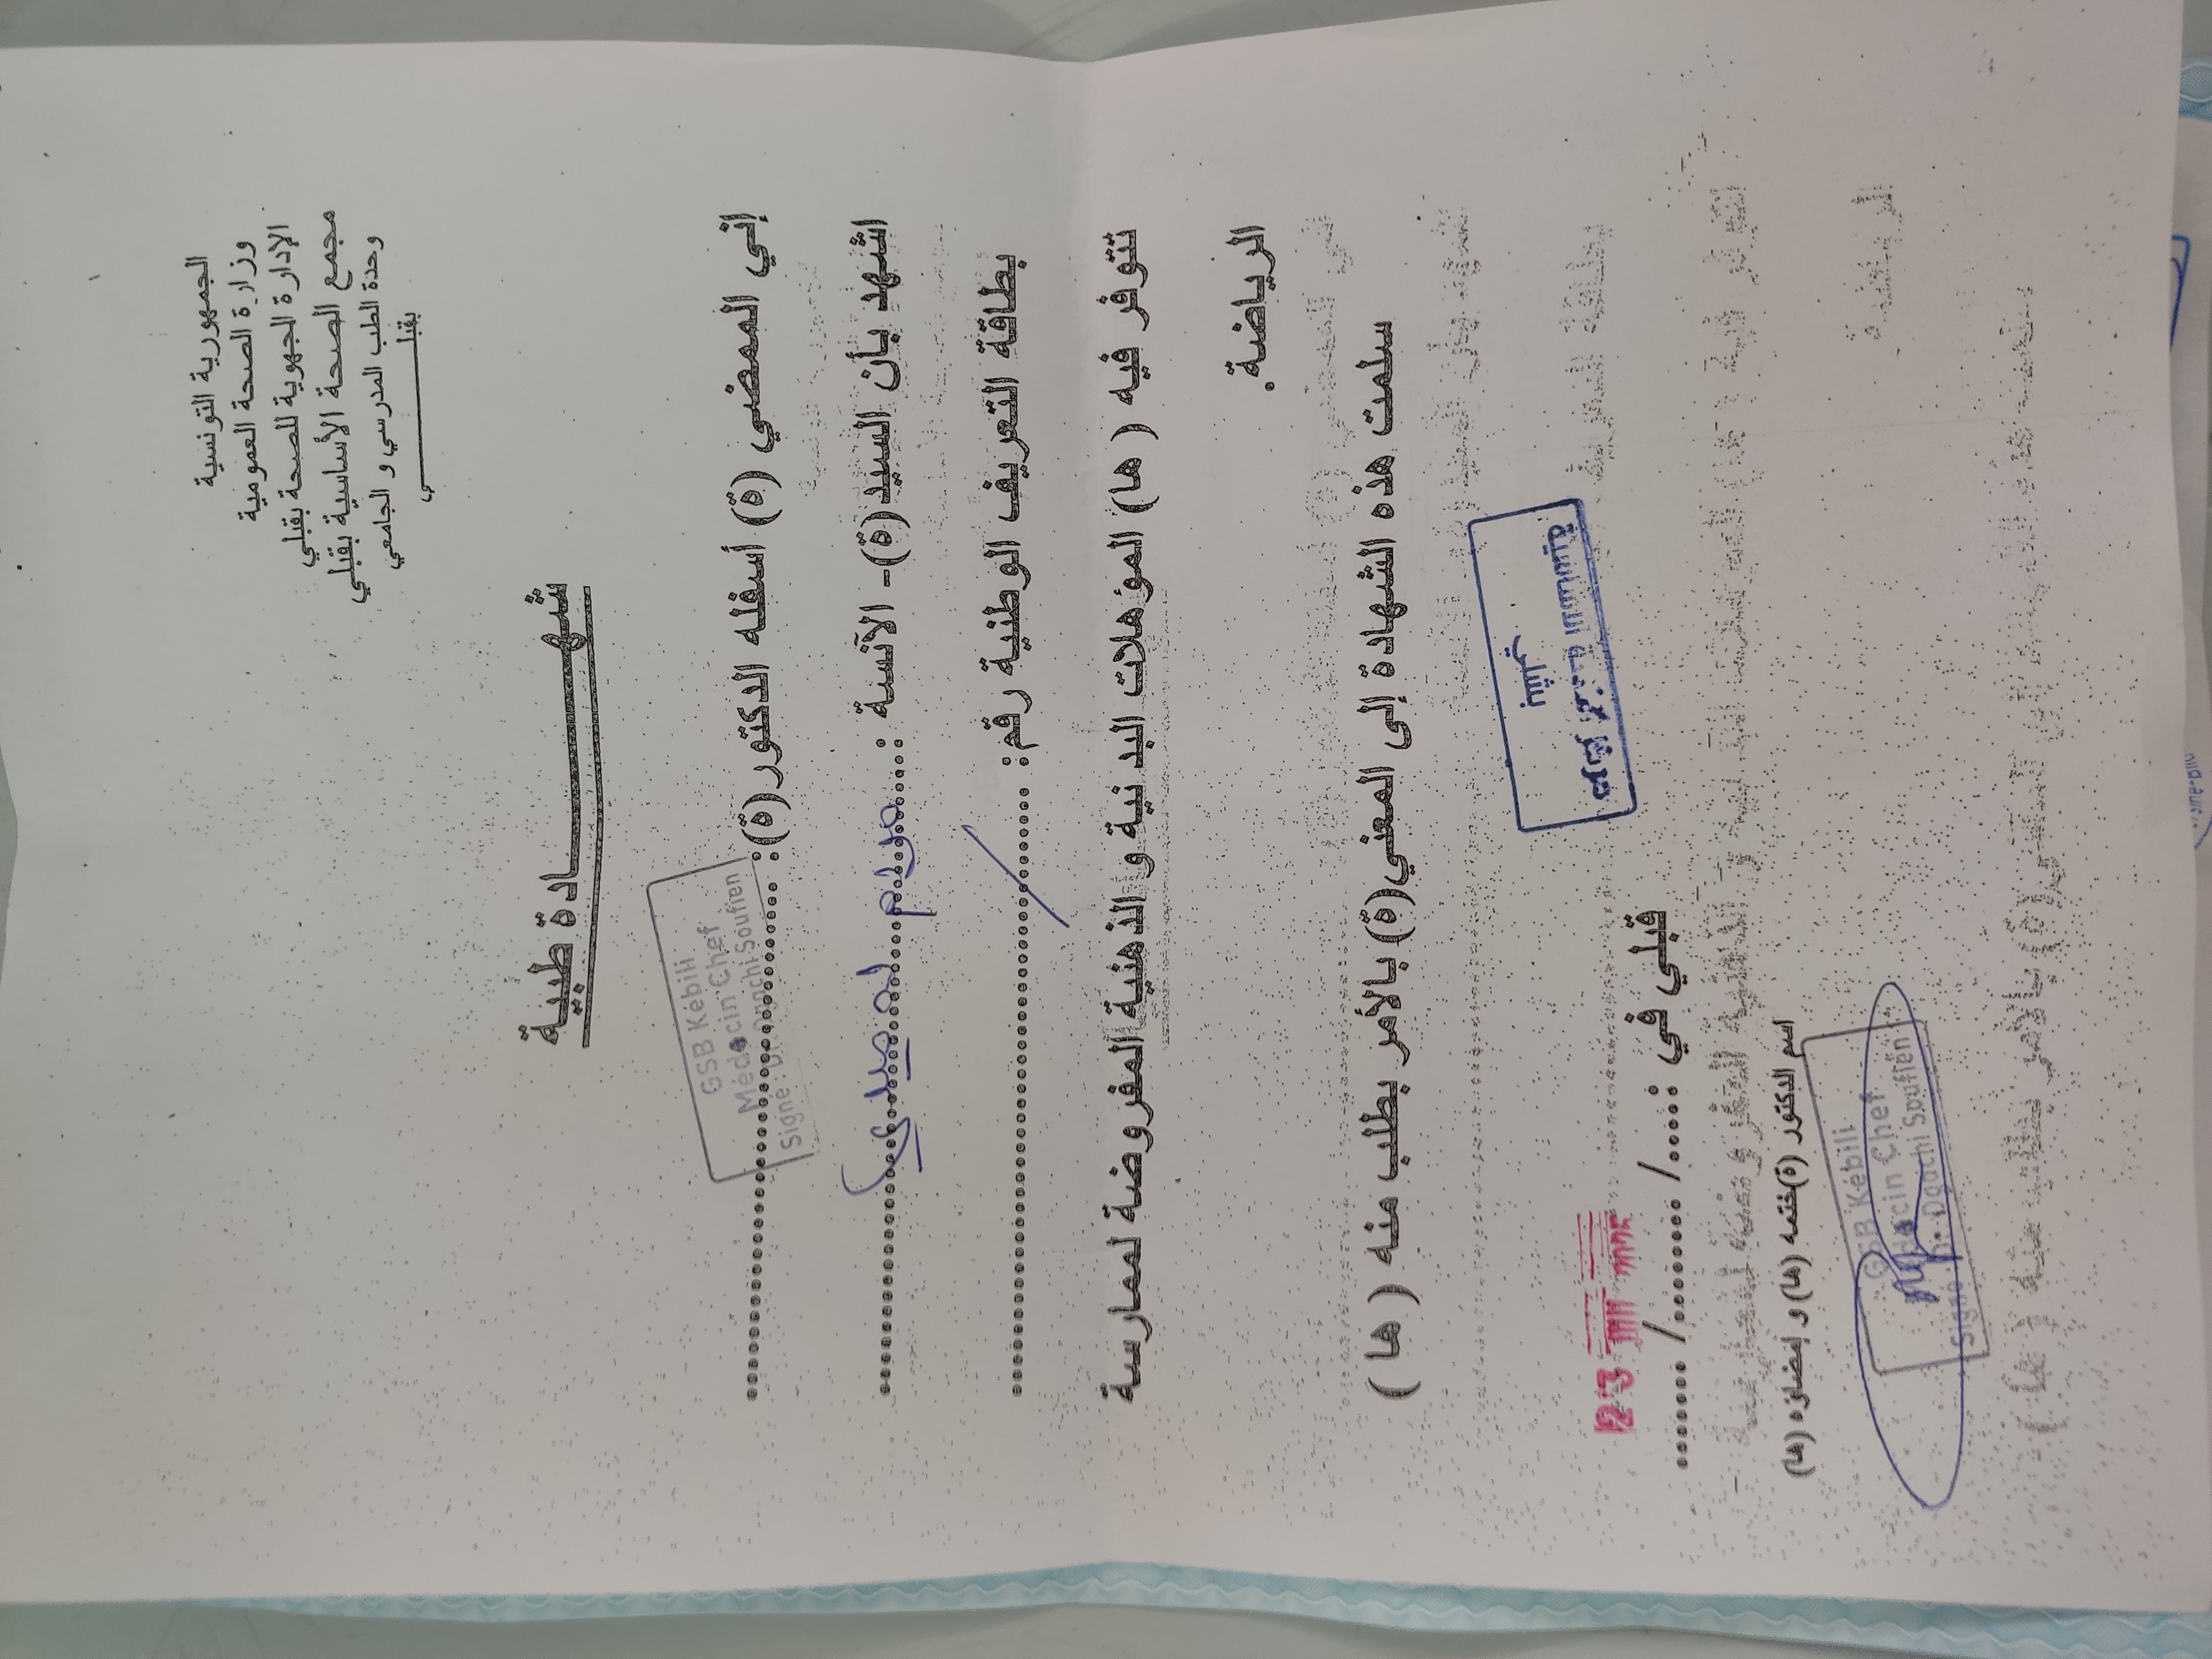 الجمهورية التونسية
وزارة الصحة العمومية
الإدارة الجهوية للصحة بقبلي
مجمع الصحة الأساسية بقبلي
وحدة الطب المدرسي و الجامعي
بقبلـــــــــي
شهــــــــادة طبية
إني الممضي (ة) أسفله الدكتور(ة): ........................................
GSB Kébili
Médecin Chef
Signe : Dr Dgachi Soufien
اشهد بأن السيد(ة)- الآنسة :..... مريم ........................
بطاقة التعريف الوطنية رقم: ........................................
تتوفر فيه ( ها) المؤهلات البد نية و الذهنية المفروضة لممارسة
الرياضة.
سلمت هذه الشهادة إلى المعني(ة) بالأمر بطلب منه ( ها )
مجمع الصحة الأساسية
بقبلي
23
قبلي في :...../........./........
اسم الدكتور (ة)ختمه (ها) و إمضاؤه (ها)
GSB Kébili
Médecin Chef
Signe : Dr. Dgachi Soufien